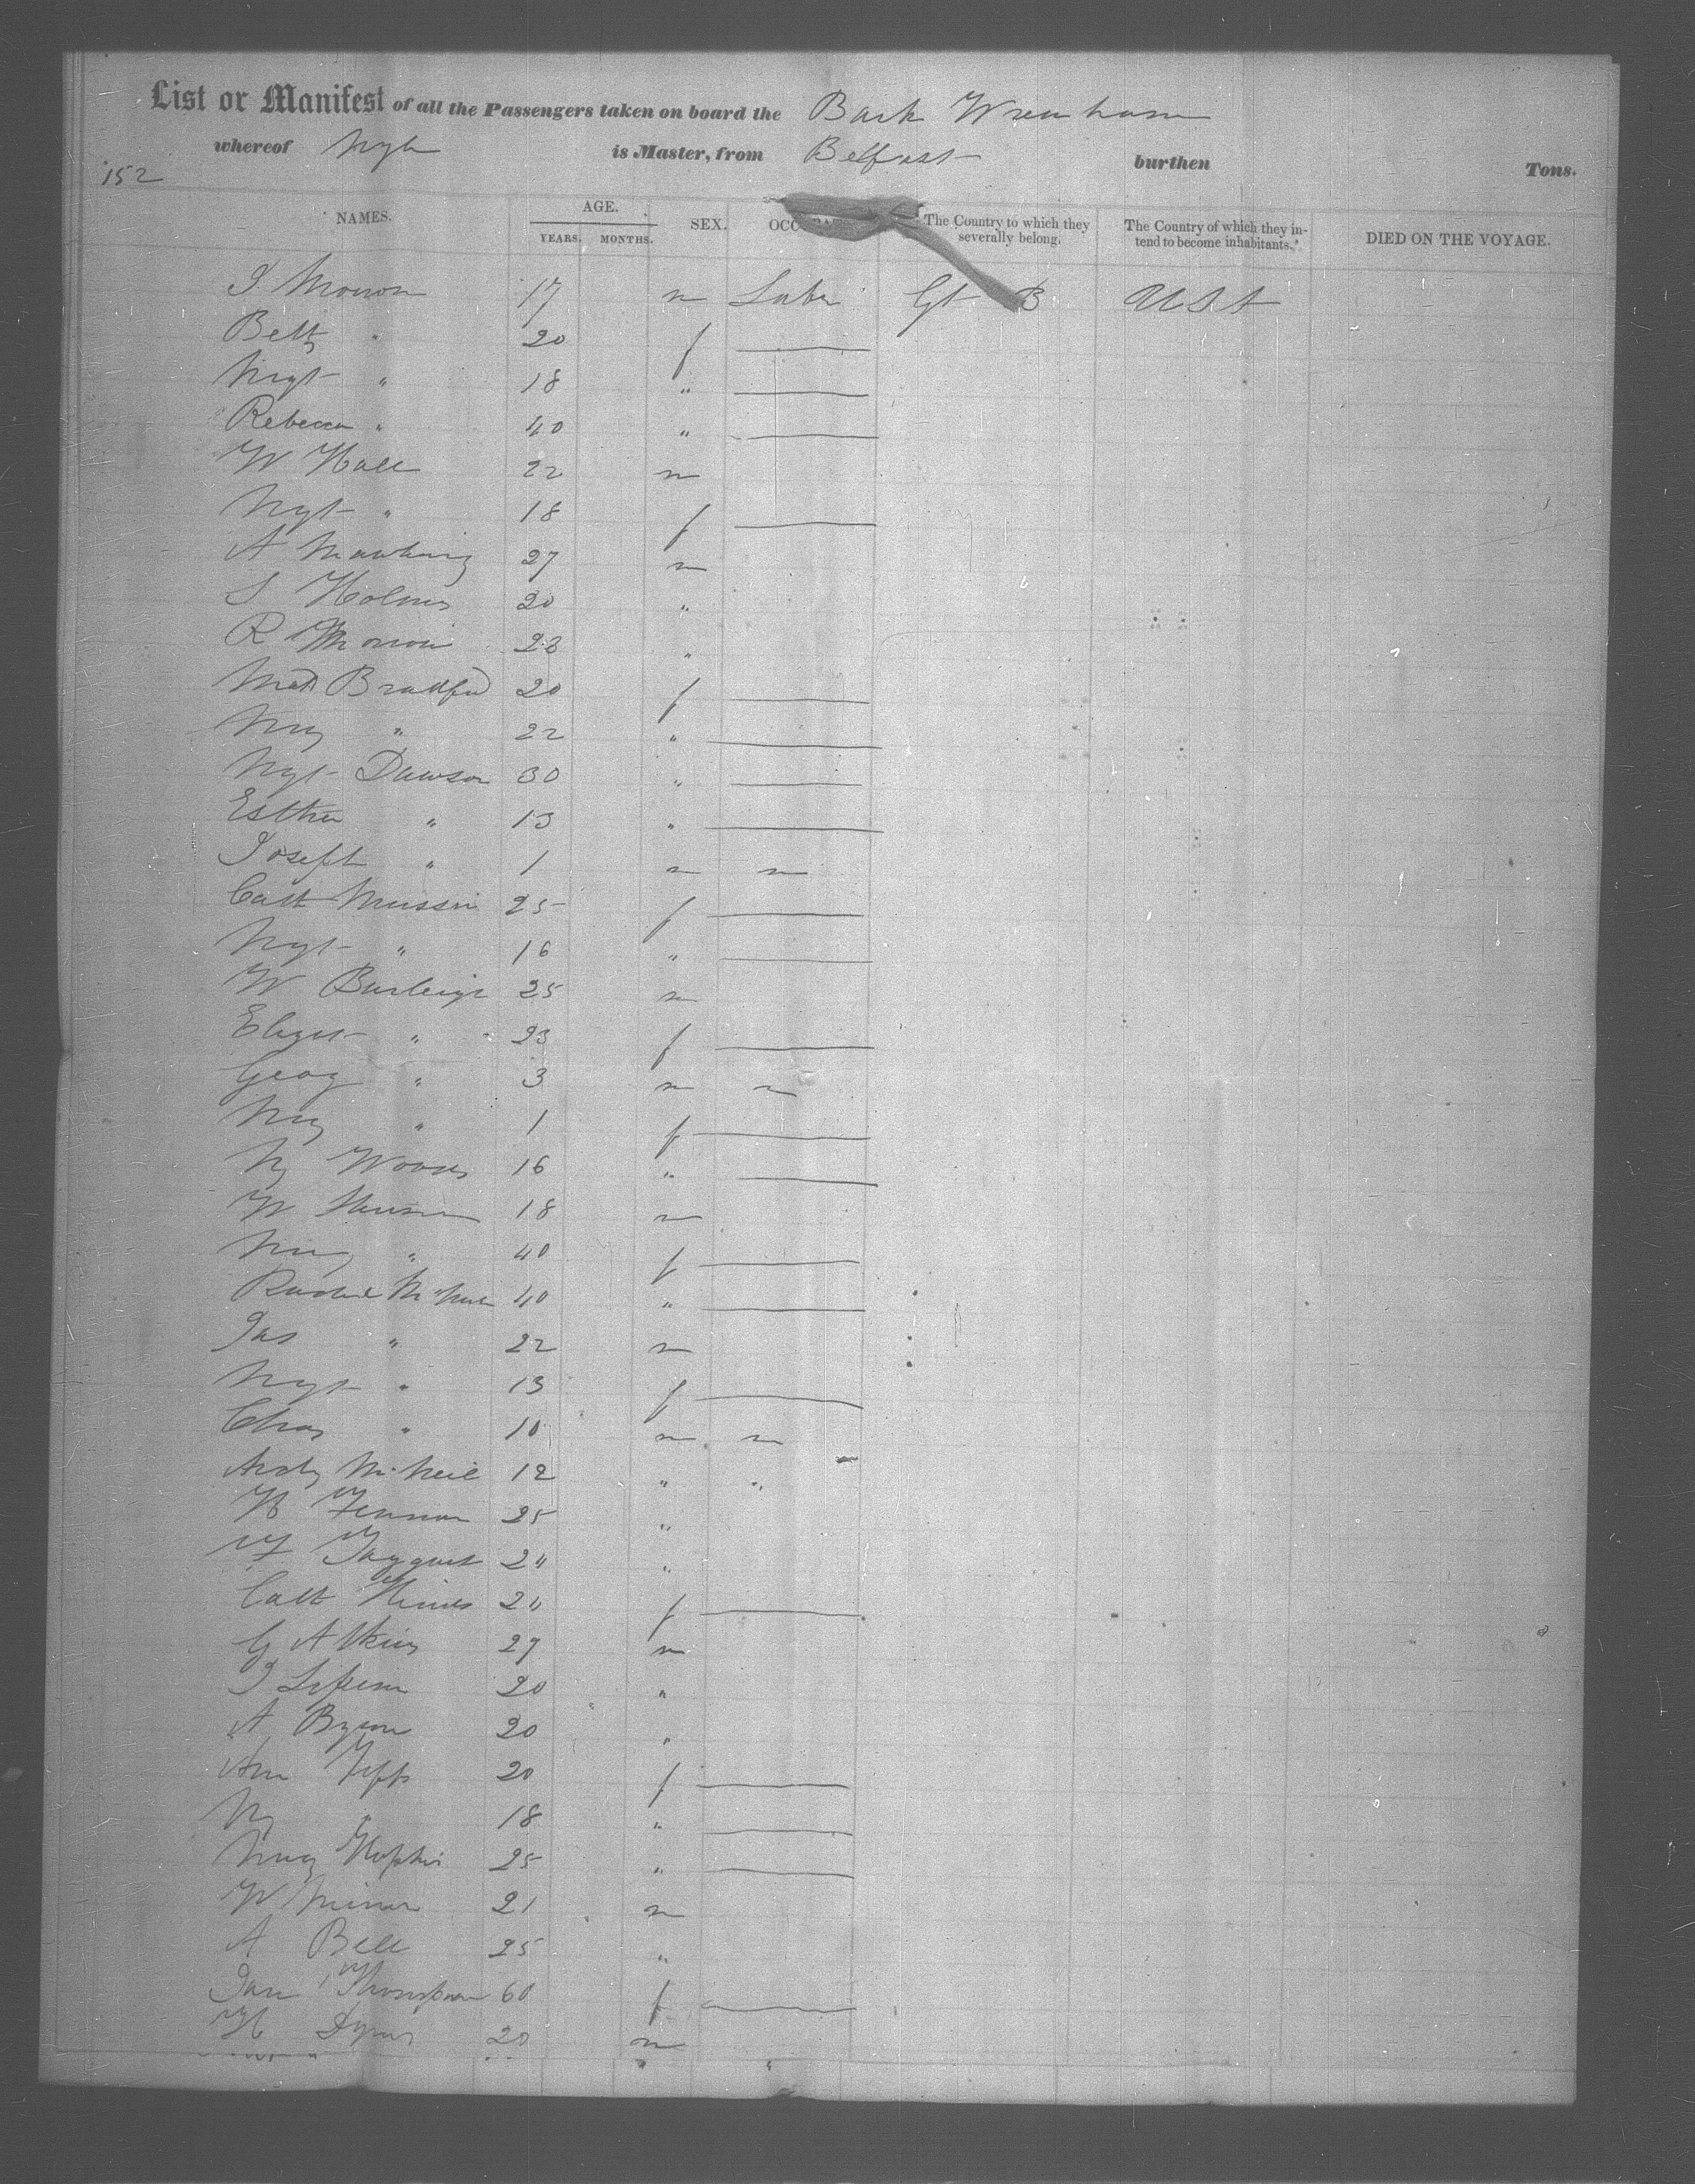 List or Manifest of all the Passengers taken on board the Bark Wrenham
whereof is Master, from Belfast burthen Tons.
152
NAMES. AGE. YEARS. MONTHS. SEX. The Country to which they severally belong. The Country of which they intend to become inhabitants. DIED ON THE VOYAGE.
J. Morrow 17 m Labor Gt B USA
Betty " 20 f
Mgt " 18 "
Rebecca " 40 "
W Hall 22 m
Mgt " 18 f
A 27 m
S Holmes 20 "
R Morrow 23 "
Bradford 20 f
Mry " 22 "
Mgt Dawson 30 "
Esther " 13 "
Joseph " 1 m
Cath 25 f
Mgt " 16 "
W Burleigh 25 m
Elizat " 23 f
Geog " 3 m
Mry " 1 f
My Woods 16 "
W 18 m
Mry " 40 f
40 "
Jas " 22 m
Mgt " 13 f
Chas " 10 m
Andy McNeil 12 " "
H 25 "
Taggart 24 "
Cath 20 f
G Atkins 27 m
J 20 "
A Byron 20 "
Ann 20 f
My " 18 "
Mary Hopkins 25 "
W Minor 21 m
A Bell 25 "
Jane Thompson 60 f
H 20 m